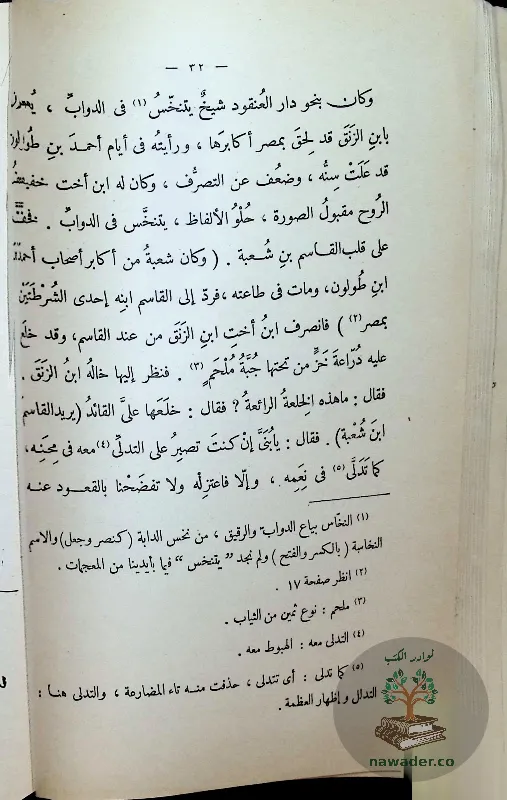 — ٣٢ —
وكان بنحو دار العُنقود شيخٌ يتنخّسُ (١) فى الدوابّ ، يُعرف
بابنِ الزَنَقِ قد لِحقَ بمصر أكابرَها ، ورأيتُه فى أيام أحمدَ بنِ طُولون
قد عَلَتْ سِنُّه ، وضعُف عن التصرُّف ، وكان له ابن أخت خفيفُ
الرُوح مقبولُ الصورة ، حُلْوُ الألفاظ ، يتنخَّس فى الدوابّ . فخَفَّ
على قلب القاسم بنِ شُعبة . ( وكان شعبةُ من أكابر أصحاب أحمدَ
ابنِ طُولون، ومات فى طاعته ، فردّ إلى القاسم ابنِه إحدى الشُرطَتَيْن
بمصر (٢) ) فانصرف ابنُ أختِ ابنِ الزَنَقِ من عند القاسم، وقد خلَع
عليه دُرّاعةَ خَزٍّ من تحتها جُبَّةُ مُلْحَمٍ (٣) . فنظر إليها خالُه ابنُ الزَنَقِ .
فقال : ماهذه الخِلعةُ الرائعةُ ? فقال : خلَعها علىَّ القائدُ (يريدالقاسمَ
ابنَ شُعْبةَ) . فقال : يابُنَىَّ إنْ كنتَ تصبِرُ على التدلِّى (٤) معه فى مِحَنِه،
كما تَدَلَّى (٥) فى نِعَمِه ، وإلّا فاعتزِلْه ولا تفضَحْنا بالقعود عنه
(١) النخّاس بياع الدواب والرقيق ، من نخس الدابة (كنصر وجعل) والاسم
النخاسة ( بالكسر والفتح ) ولم نجد ” يتنخس “ فيما بأيدينا من المعجمات .
(٢) انظر صفحة ١٧ .
(٣) ملحم : نوع ثمين من الثياب .
(٤) التدلى معه : الهبوط معه .
(٥) كما تدلى : أى تتدلى ، حذفت منه تاء المضارعة ، والتدلى هنا :
التدلل وإظهار العظمة .
نوادر الكتب
nawader.co